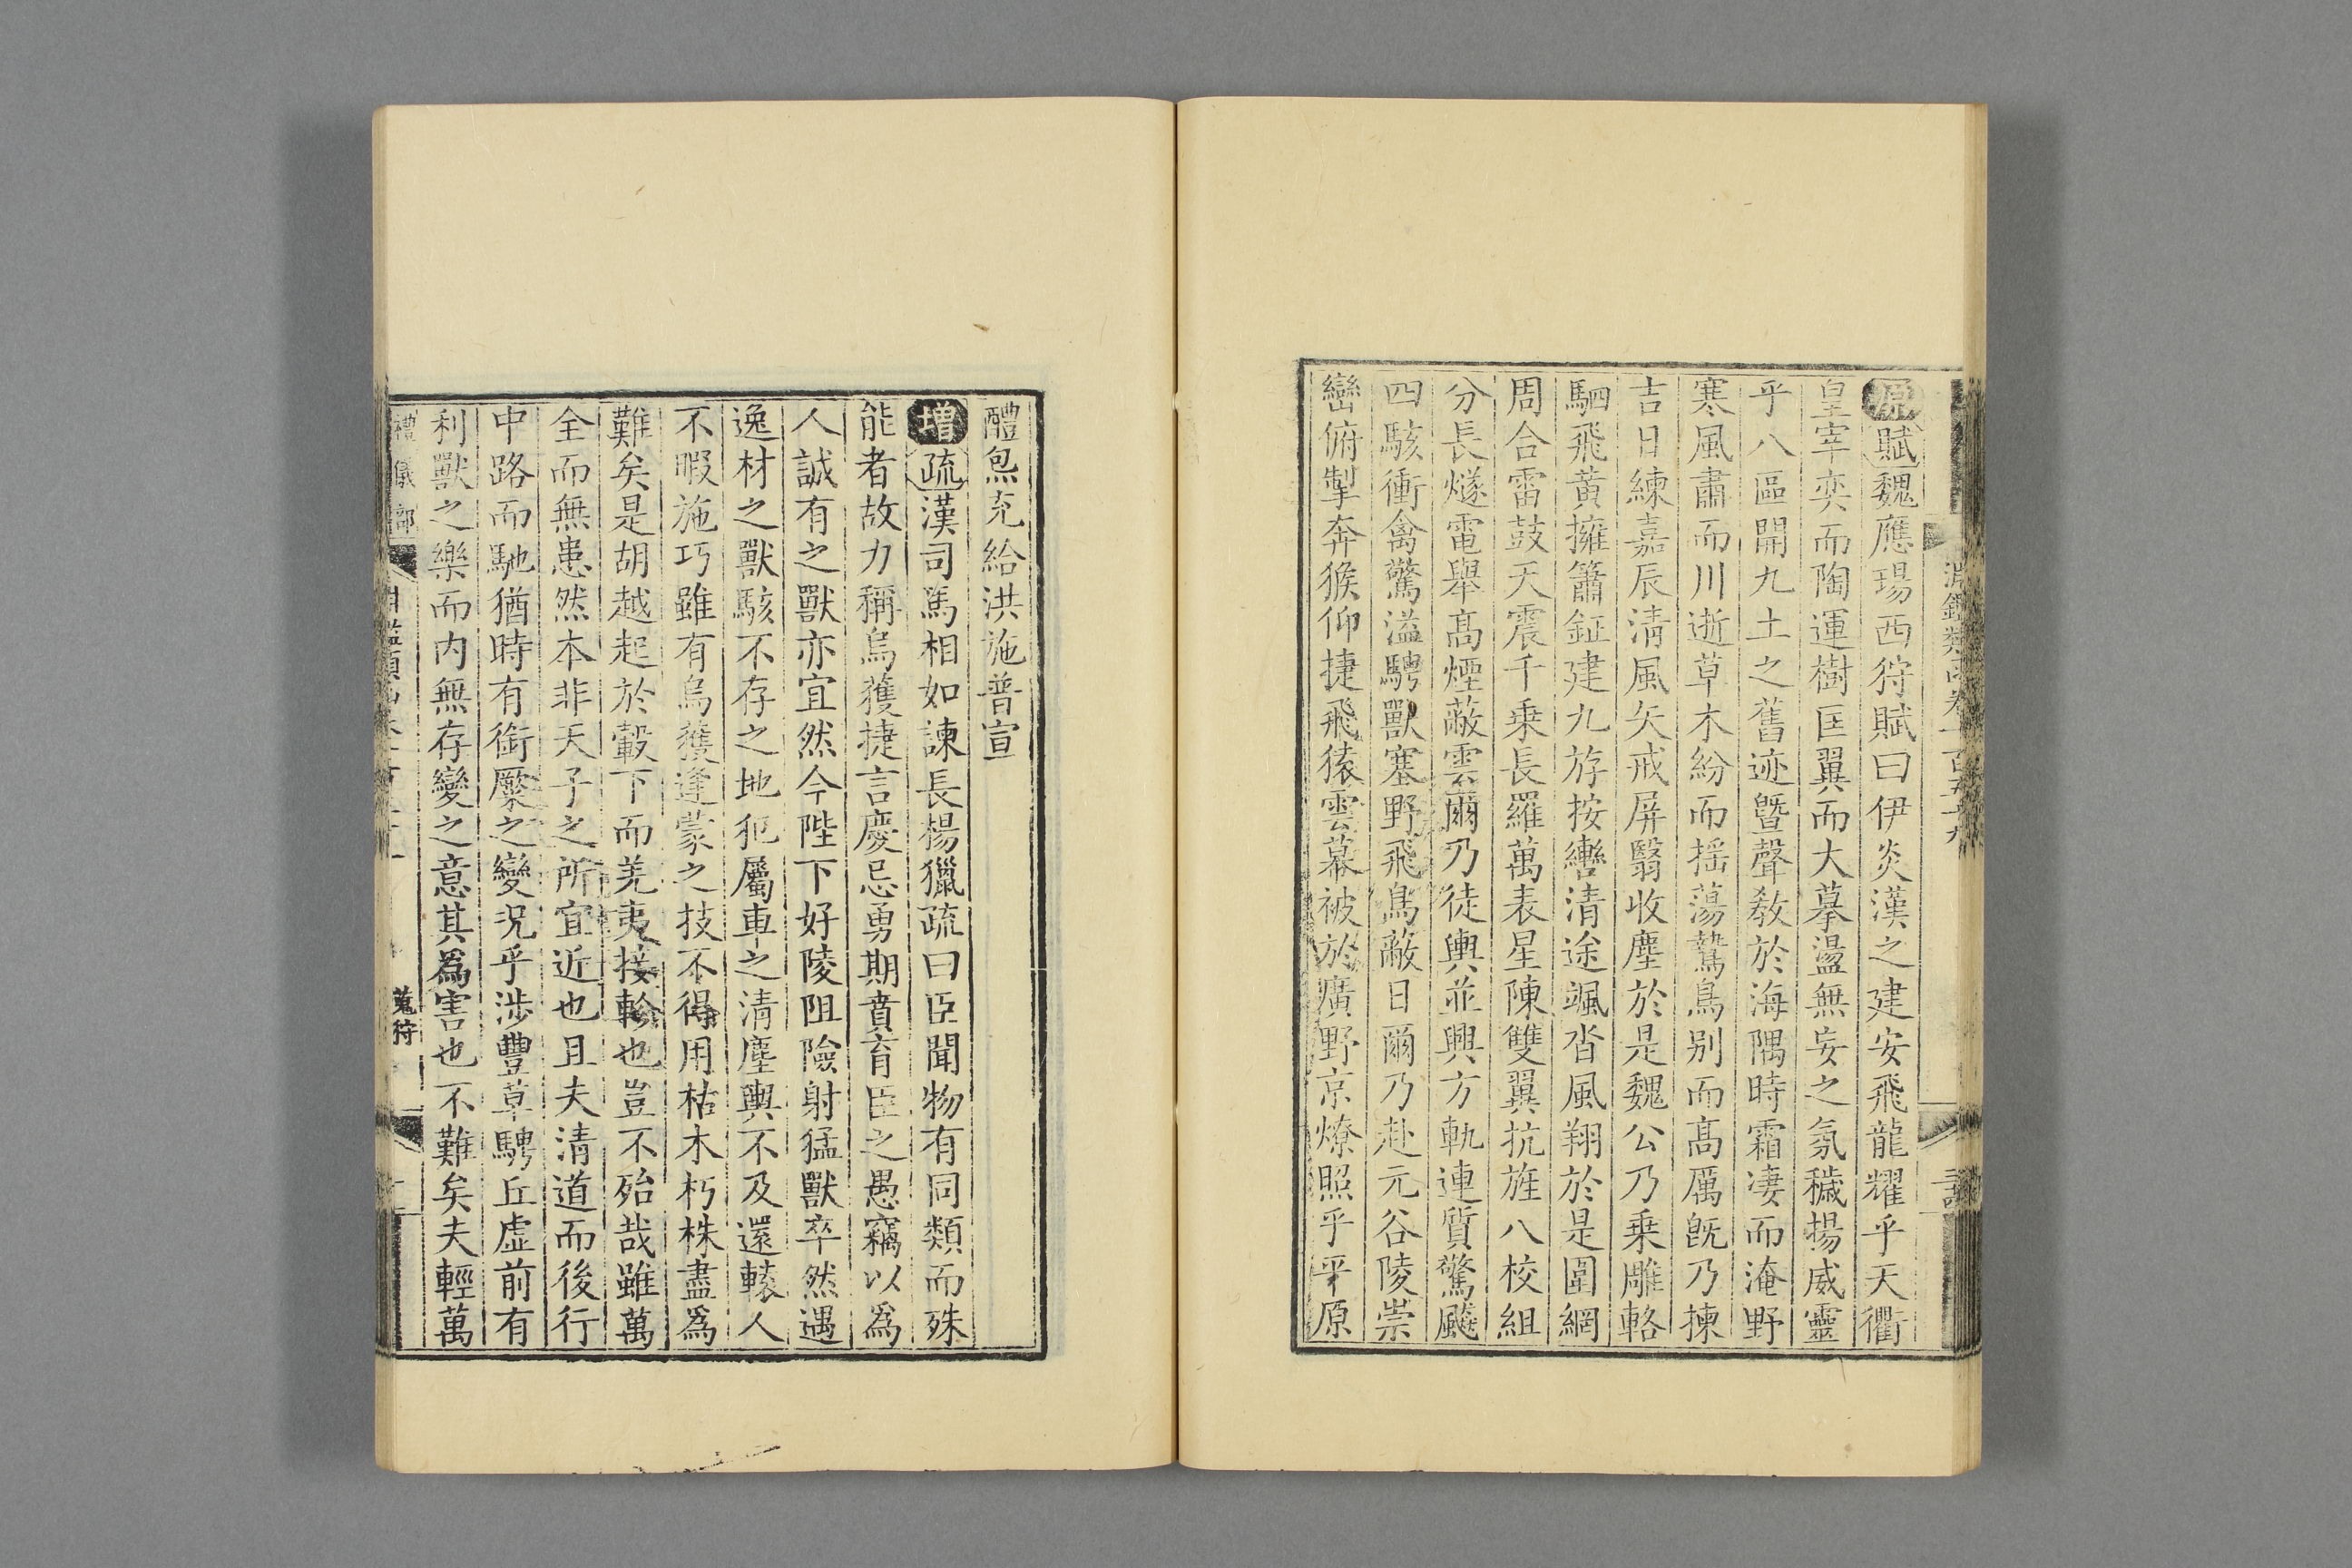 原賦魏應瑒西狩賦曰伊炎漢之建安飛龍耀乎天衢
皇宰奕而陶運樹匡翼而大摹盪無妄之氛穢揚威靈
乎八區開九土之舊迹曁聲敎於海隅時霜凄而淹野
寒風肅而川逝草木紛而揺蕩鷙鳥别而髙厲旣乃揀
吉日練嘉辰清風矢戒屏翳收塵於是魏公乃乗雕輅
駟飛黃擁簫鉦建九斿按轡清途颯沓風翔於是圍網
周合雷鼓天震千乗長羅萬表星陳雙翼抗旌八校組
分長燧電舉髙煙蔽雲爾乃徒輿並興方軌連質驚飈
四駭衝禽驚溢騁獸塞野飛鳥蔽日爾乃赴元谷陵崇
巒俯掣奔猴仰捷飛猿雲幕被於廣野京燎照乎平原
醴炰充給洪施普宣
增疏漢司馬相如諫長楊獵疏曰臣聞物有同類而殊
能者故力稱烏獲捷言慶忌勇期賁育臣之愚竊以爲
人誠有之獸亦宜然今陛下好陵阻險射猛獸卒然遇
逸材之獸駭不存之地犯屬車之清塵輿不及還轅人
不暇施巧雖有烏獲逢蒙之技不得用枯木朽株盡爲
難矣是胡越起於轂下而羌夷接軫也豈不殆哉雖萬
全而無患然本非天子之所宜近也且夫清道而後行
中路而馳猶時有銜橜之變況乎涉豐草騁丘虛前有
利獸之樂而内無存變之意其爲害也不難矣夫輕萬
禮儀部
蒐狩